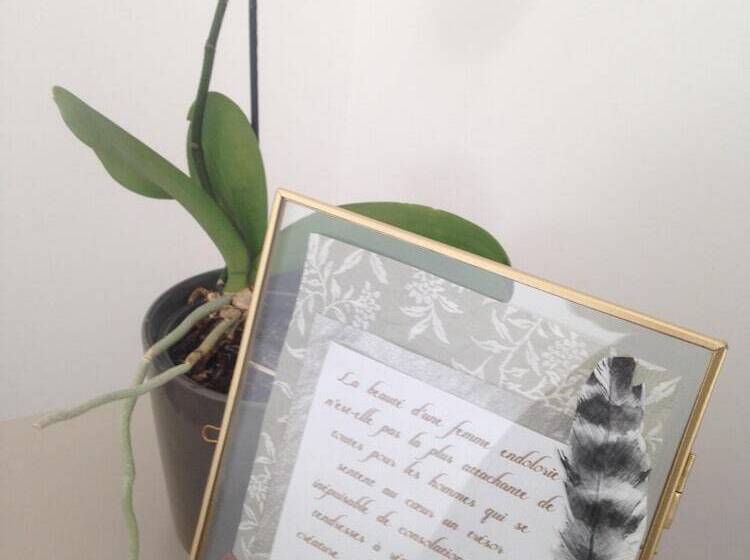 La beauté d'une femme endolorie
n'est-elle pas la plus attachante de
toutes pour les hommes qui se
sentent au cœur un trésor
inépuisable de consolations
tendresses à
créature